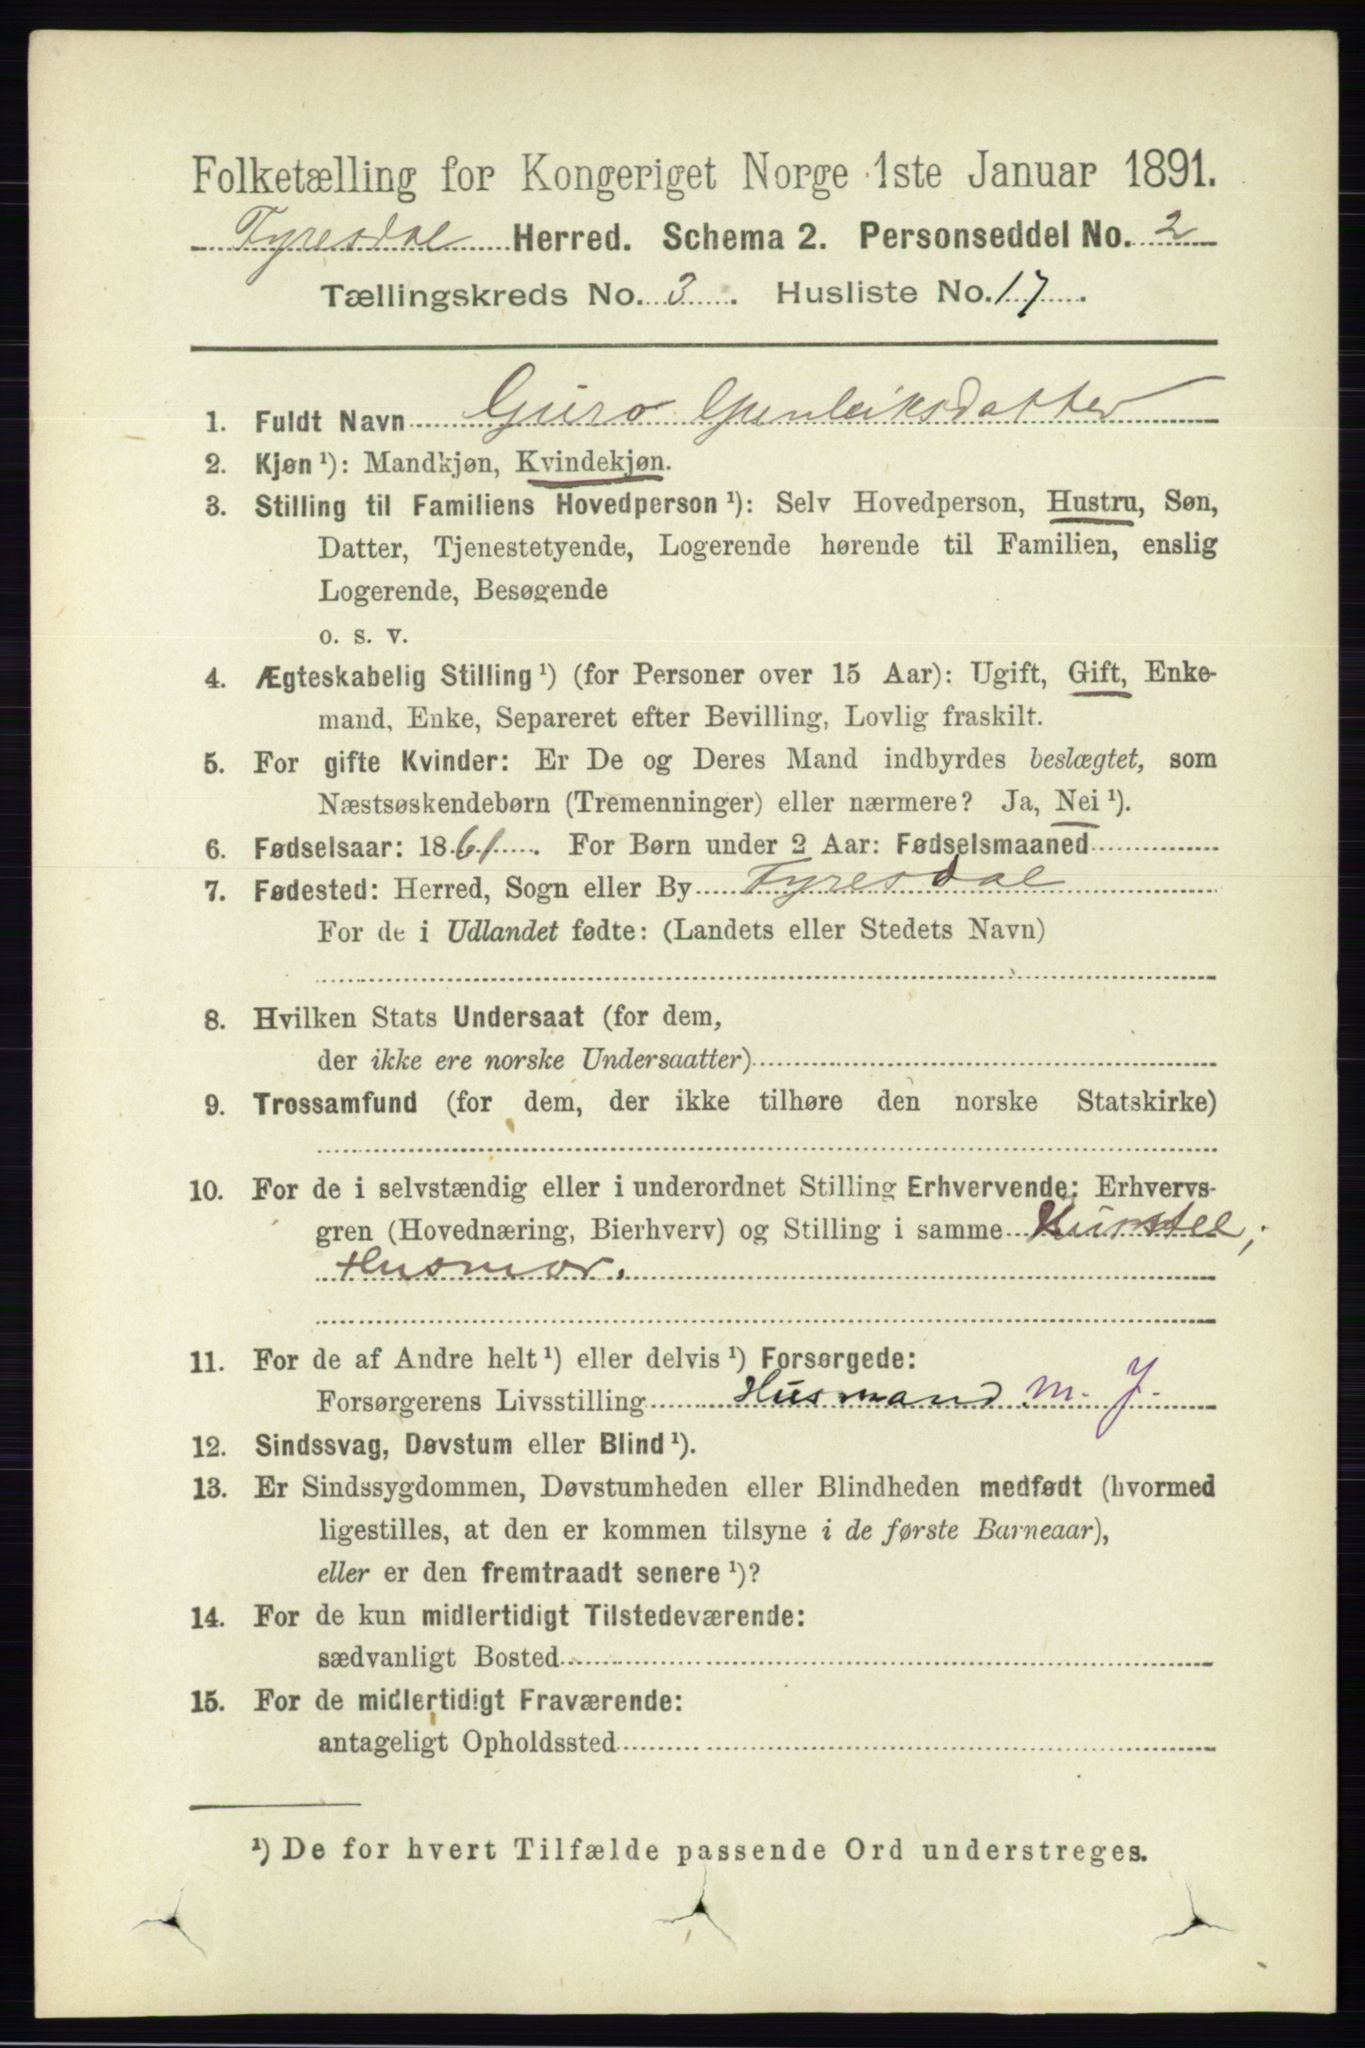 Folketælling for Kongeriget Norge 1ste Januar 1891.
Tyresdal Herred. Schema 2. Personseddel No. 2
Tællingskreds No. 3. Husliste No. 17.
1. Fuldt Navn Guro Gunleiksdatter
2. Kjøn ¹): Mandkjøn, Kvindekjøn.
3. Stilling til Familiens Hovedperson ¹): Selv Hovedperson, Hustru, Søn,
Datter, Tjenestetyende, Logerende hørende til Familien, enslig
Logerende, Besøgende
o. s. v.
4. Ægteskabelig Stilling ¹) (for Personer over 15 Aar): Ugift, Gift, Enke-
mand, Enke, Separeret efter Bevilling, Lovlig fraskilt.
5. For gifte Kvinder: Er De og Deres Mand indbyrdes beslægtet, som
Næstsøskendebørn (Tremenninger) eller nærmere? Ja, Nei ¹).
6. Fødselsaar: 1861. For Børn under 2 Aar: Fødselsmaaned
7. Fødested: Herred, Sogn eller By Tyresdal
For de i Udlandet fødte: (Landets eller Stedets Navn)
8. Hvilken Stats Undersaat (for dem,
der ikke ere norske Undersaatter)
9. Trossamfund (for dem, der ikke tilhøre den norske Statskirke)
10. For de i selvstændig eller i underordnet Stilling Erhvervende: Erhvervs-
gren (Hovednæring, Bierhverv) og Stilling i samme
Husmor.
11. For de af Andre helt ¹) eller delvis ¹) Forsørgede:
Forsørgerens Livsstilling Husmand m. J.
12. Sindssvag, Døvstum eller Blind ¹).
13. Er Sindssygdommen, Døvstumheden eller Blindheden medfødt (hvormed
ligestilles, at den er kommen tilsyne i de første Barneaar),
eller er den fremtraadt senere ¹)?
14. For de kun midlertidigt Tilstedeværende:
sædvanligt Bosted
15. For de midlertidigt Fraværende:
antageligt Opholdssted
¹) De for hvert Tilfælde passende Ord understreges.